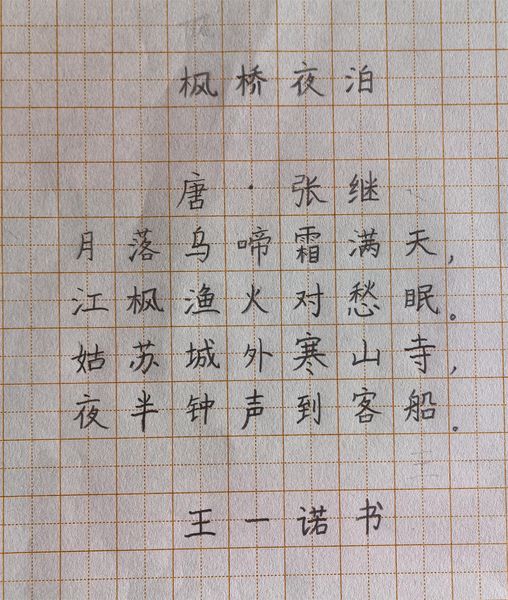 枫桥夜泊
唐·张继
月落乌啼霜满天,
江枫渔火对愁眠。
姑苏城外寒山寺,
夜半钟声到客船。
王一诺书